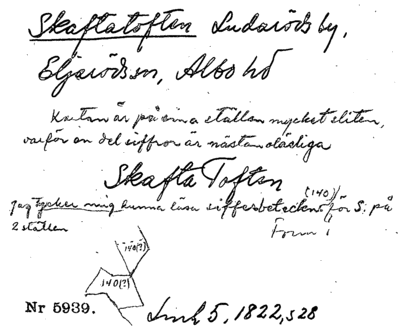 Skaftatoften Ludaröds by,
Eljaröds sn, Albo hd
Kartan är på sina ställen mycket sliten,
varför en del siffror är nästan oläsliga
Skafta Toften
(140)
Jag tycker mig kunna läsa sifferbeteckn. för S. på
2 ställen Form 1
140(?)
140(?)
Nr 5939. 5, 1822, s 28